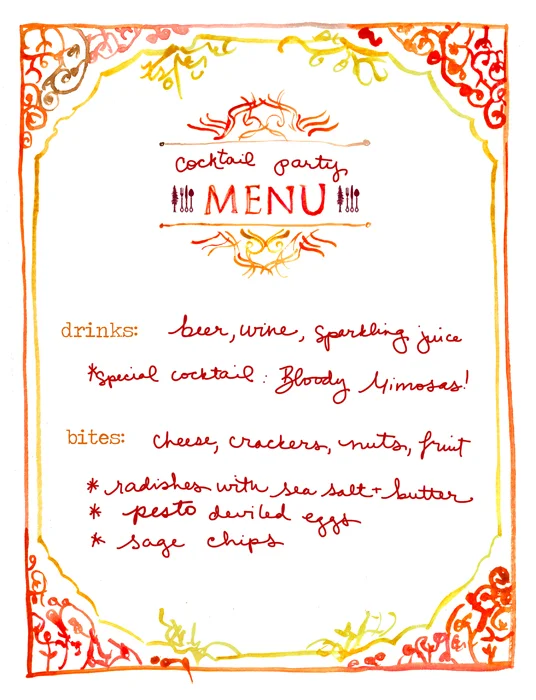 cocktail party
MENU
drinks: beer, wine, sparkling juice
*special cocktail: Bloody Mimosas!
bites: cheese, crackers, nuts, fruit
* radishes with sea salt + butter
* pesto deviled eggs
* sage chips